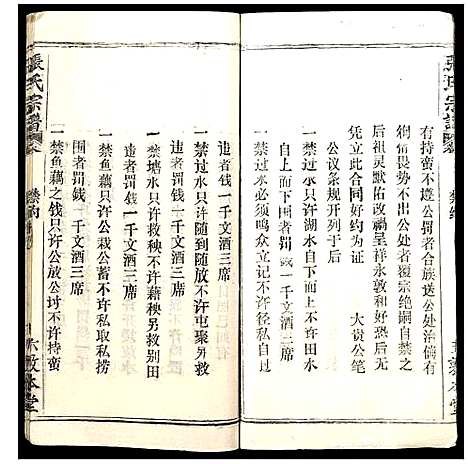 張氏宗譜
禁約
敦本堂
有持蛮不遵公罚者合族送公处治倘有
徇情畏势不出公处者覆宗绝嗣自禁之
后祖灵默佑改禍呈祥永敦和好恐后无
凭立此合同好约为证
大贵公笔
公议条规开列于后
一禁过水只许湖水自下而上不许田水
自上而下围者罚钱一千文酒三席
一禁过水必须鸣众立记不许径私自过
一禁过水只许随到随放不许屯聚别田
违者罚钱一千文酒三席
一禁塘水只许救秧不许藉秧另救别田
违者罚钱一千文酒三席
一禁鱼藕只许公栽公蓄不许私取私捞
围者罚钱一千文酒三席
一禁鱼藕之钱只许公放公讨不许持蛮
張氏宗譜
禁約
敦本堂